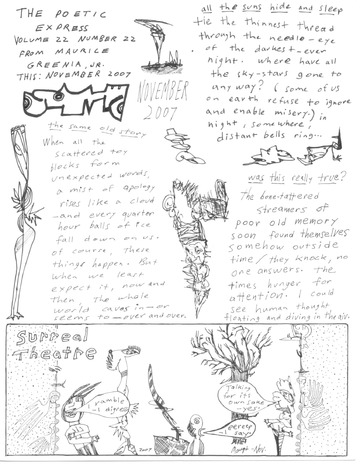 THE POETIC
EXPRESS
VOLUME 22 NUMBER 22
FROM MAURICE
GREENIA, JR.
THIS: NOVEMBER 2007
NOVEMBER
2007
the same old story
When all the
scattered toy
blocks form
unexpected words,
a mist of apology
rises like a cloud
—and every quarter
hour balls of ice
fall down on us.
of course, these
things happen. But
when we least
expect it, now and
then, the whole
world caves in—or
seems to—over and over.
all the suns hide and sleep
tie the thinnest thread
through the needle-eye
of the darkest-ever
night. where have all
the sky-stars gone to
any way? (some of us
on earth refuse to ignore
and enable misery.) in
night, somewhere,
distant bells ring...
was this really true?
The bone-tattered
streamers of
poor old memory
soon found themselves
somehow outside
time/they knock, no
one answers. The
times hunger for
attention. I could
see human thought
floating and diving in the air.
Surreal
Theatre
ramble
is digress
2007
Talking
for its
own sake
-yes.
eerely
say